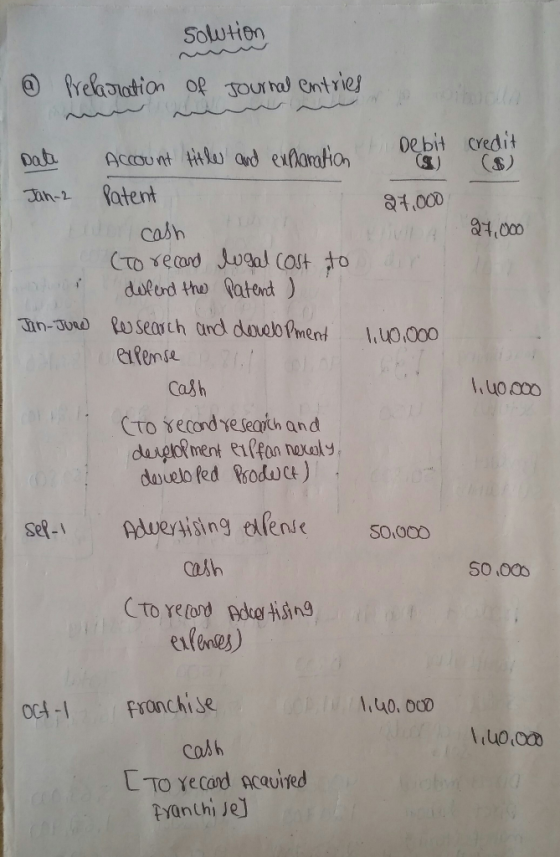 Solution
(a) Preparation of Journal entries
Date Account titles and explanation Debit ($) credit ($)
Jan-2 Patent 27,000
cash 27,000
(To record legal cost to
defend the Patent)
Jan-June Research and development 1,40,000
expense
cash 1,40,000
(To record research and
development exp fan newly
developed Product)
Sep-1 Advertising expense 50,000
cash 50,000
(To record Advertising
expenses)
Oct-1 Franchise 1,40,000
cash 1,40,000
[To record Acquired
Franchise]